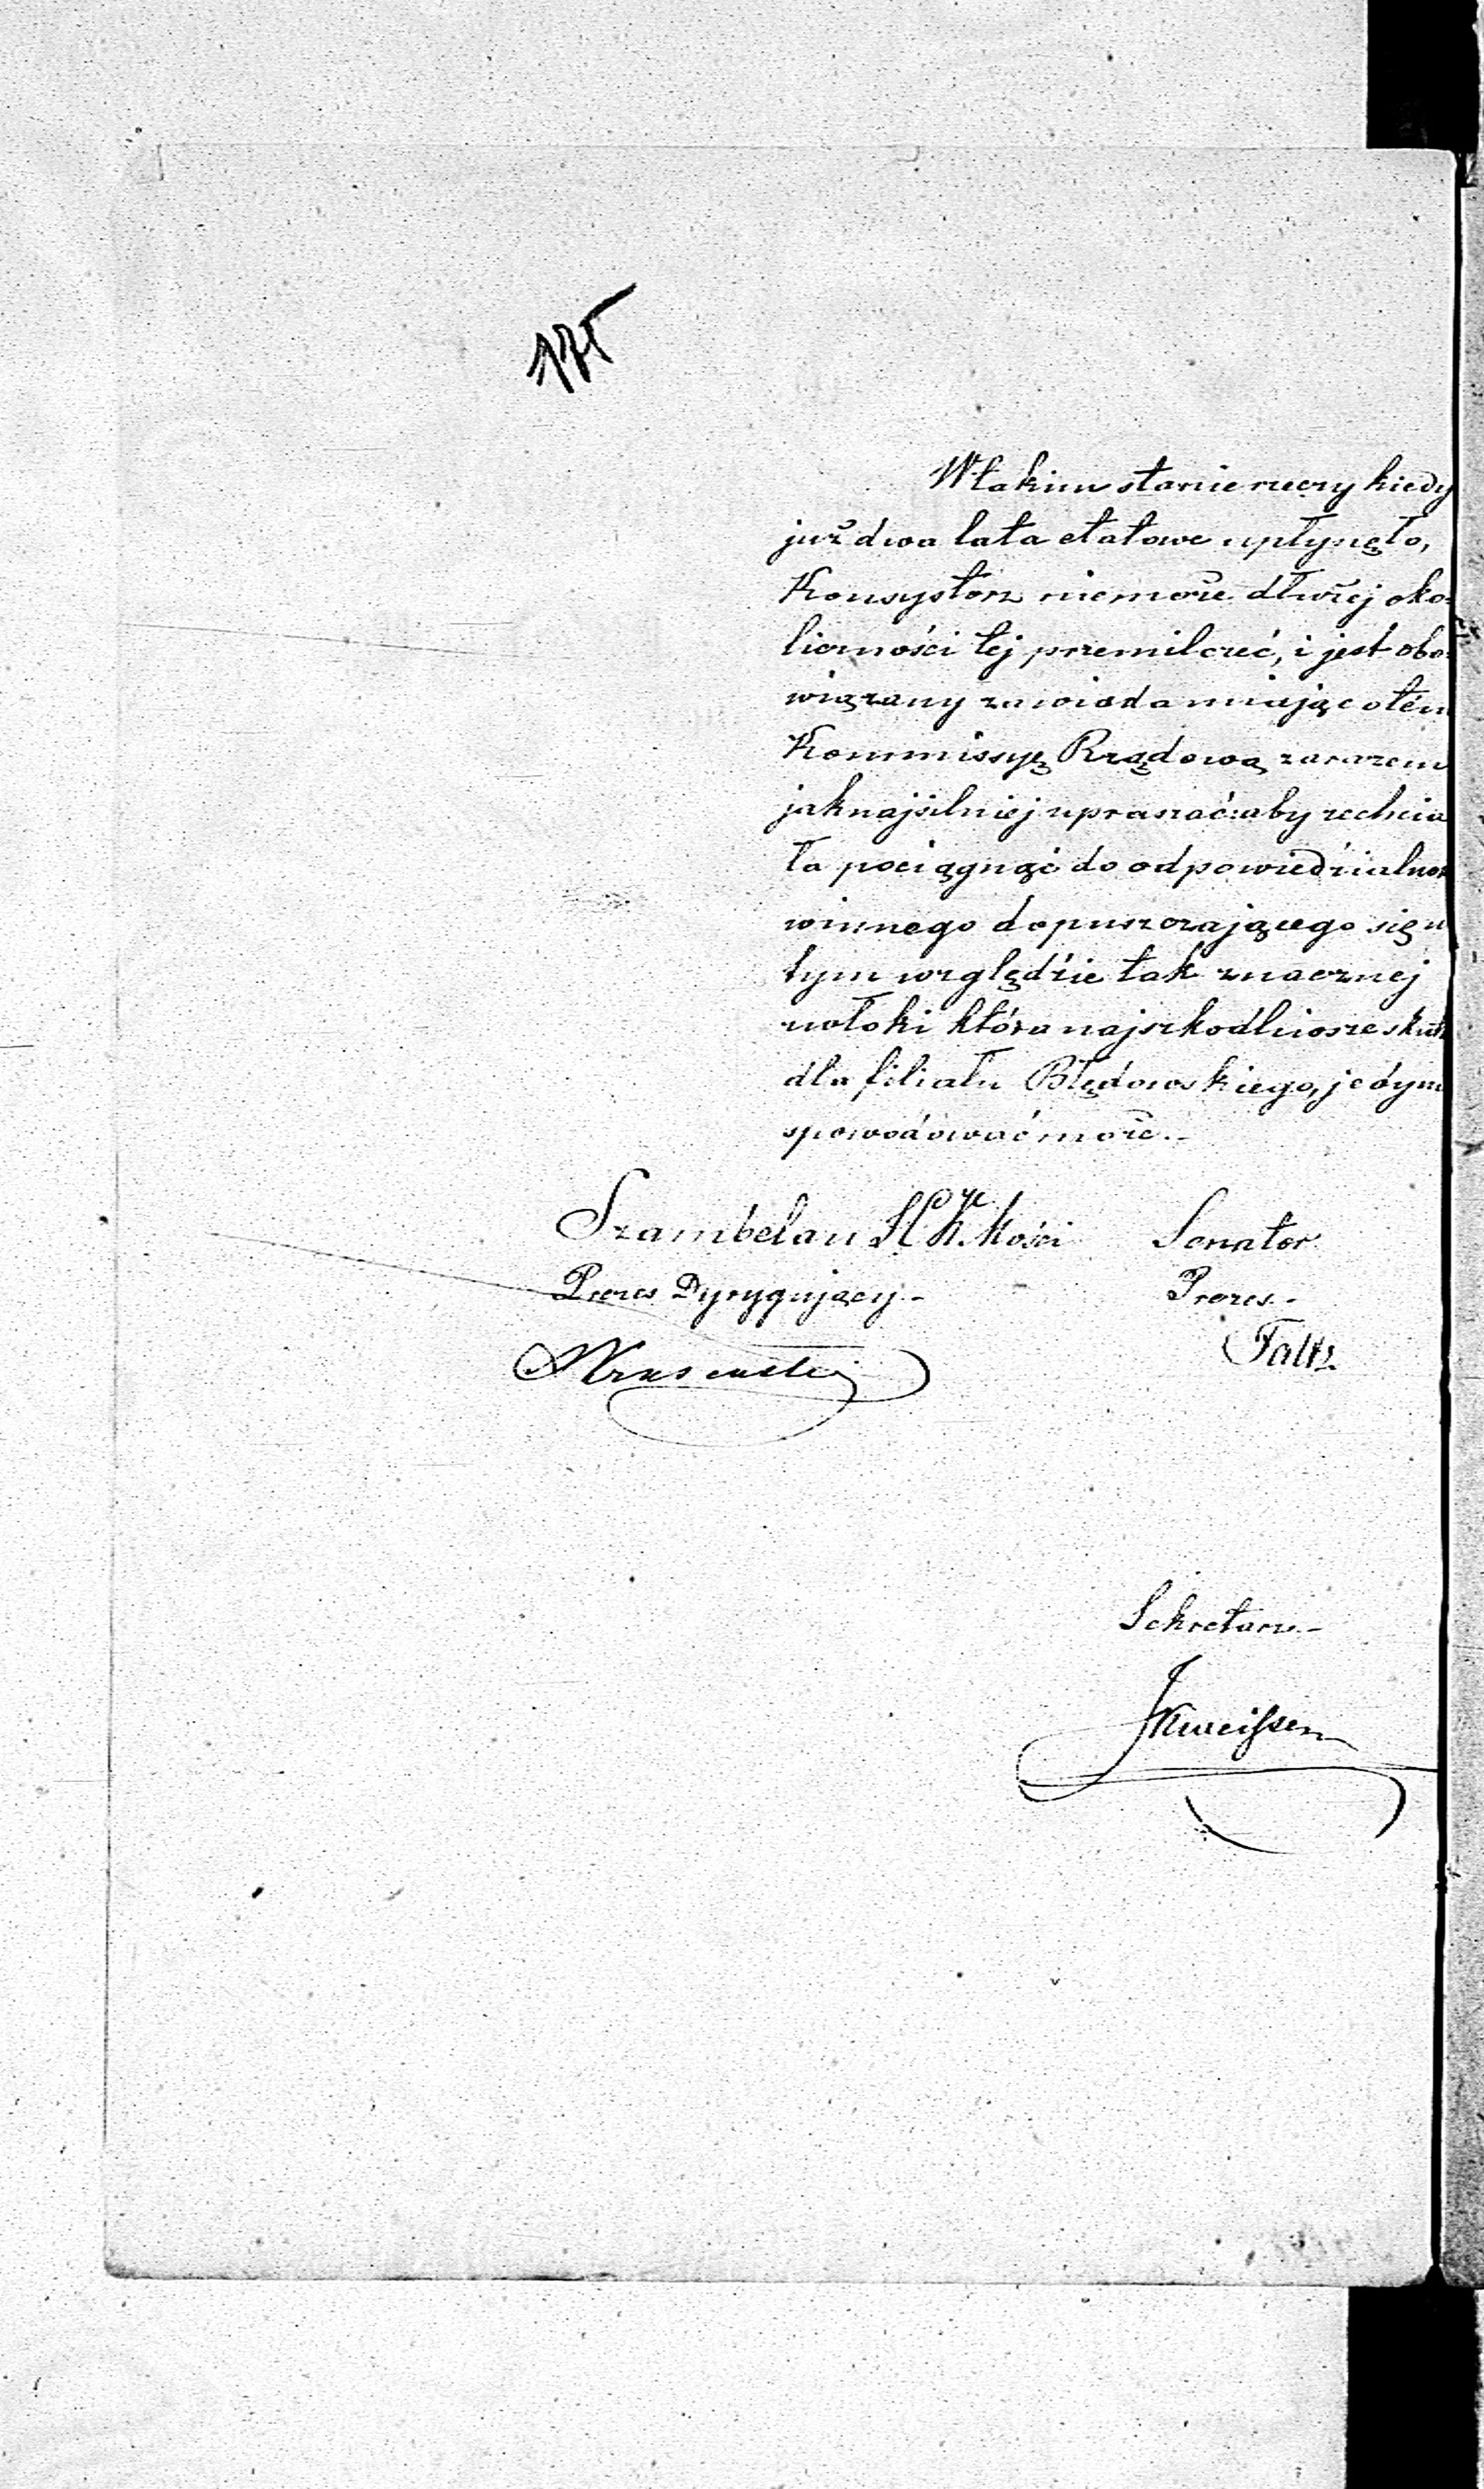 175
W takim stanie rzeczy kiedy
już dwa lata etatowe upłynęło,
Konsystorz niemoże dłużej oko-
liczności tej przemilczeć, i jest obo-
wiązany zawiadamiając otém
Kommissyę Rządową zarazem
jaknajsilniej upraszać aby zechcia
ła pociągnąć do odpowiedzialnoś
winnego dopuszczającego się w
tym względzie tak znacznej
zwłoki która najszkodliwsze skut
dla filiału Błędowskiego, jedyn
spowodować może.-
Szambelan J. C. K. Mości Senator
Prezes Dyrygujący- Prezes.-
Faltz
Sekretarz-